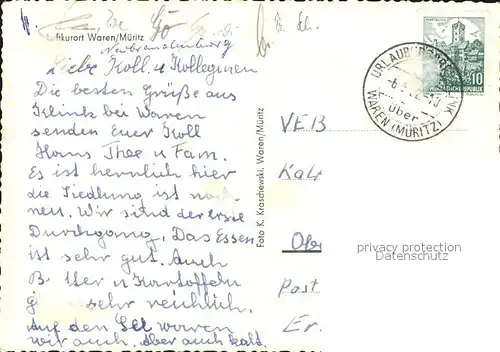 ftkurort Waren/Müritz
Neubrandenburg
Liebe Koll. u Kolleginen
Die besten Grüße aus
Klink bei Waren
senden Euer Koll
Hans Thee u Fam.
Es ist herrlich hier
die Siedlung ist noch
neu. Wir sind der erste
Durchgang, Das Essen
ist sehr gut. Auch
B. tter u Kartoffeln
g sehr reichlich.
Auf den See waren
wir auch. aber auch kalt.
Foto K. Kraschewski, Waren/Müritz
VEB
Kal
Obe
Post
Er.
URLAUB
über
WAREN (MÜRITZ)
WARTBURG
10
privacy protection
Datenschutz